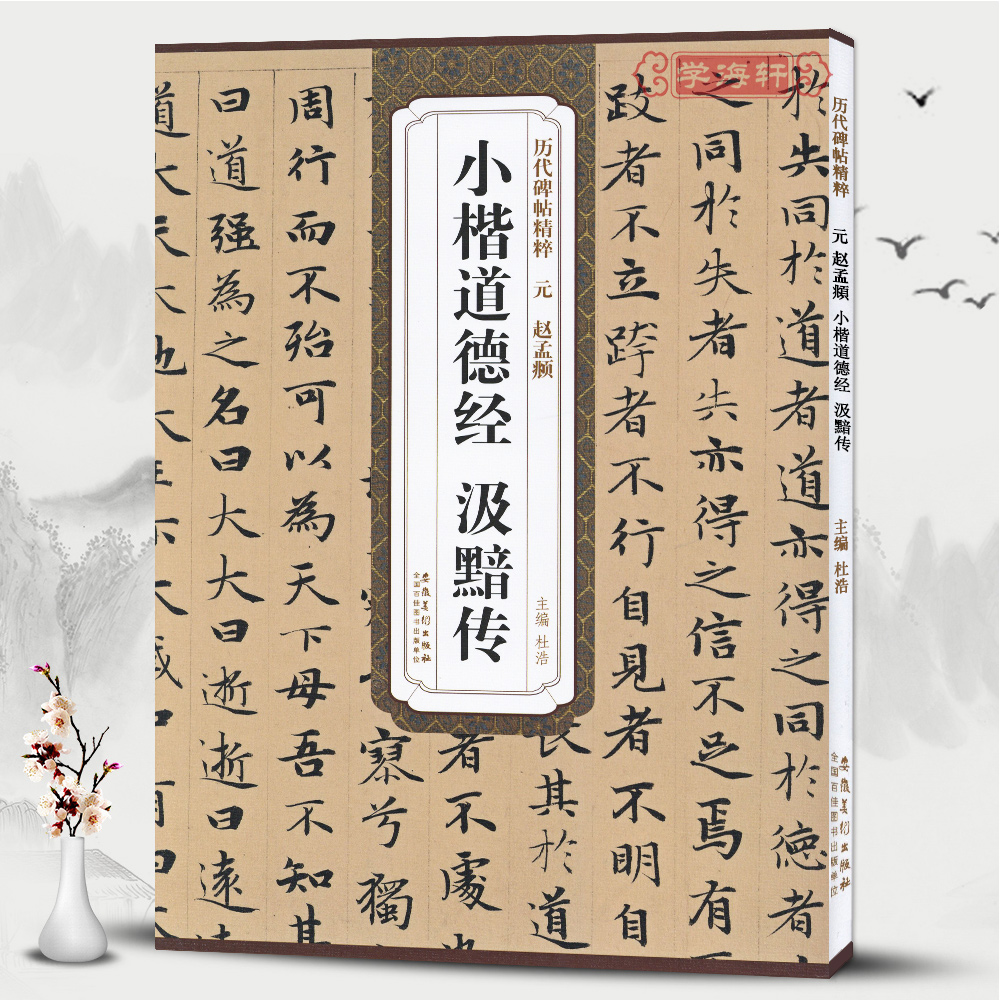 学海轩
历代碑帖精粹 元 赵孟頫
小楷道德经 汲黯传
主编 杜浩
安徽美术出版社
全国百佳图书出版单位
於失同於道者道亦得之同於德者
之同於失者失亦得之信不足焉有
跂者不立跨者不行自見者不明自
長其於道
者不處也
寥兮獨
周行而不殆可以為天下母吾不知其
曰道强為之名曰大大曰逝逝曰遠
道大天大地大王亦大域中有四
历代碑帖精粹 元 赵孟頫 小楷道德经 汲黯传 主编 杜浩
安徽美术出版社
全国百佳图书出版单位